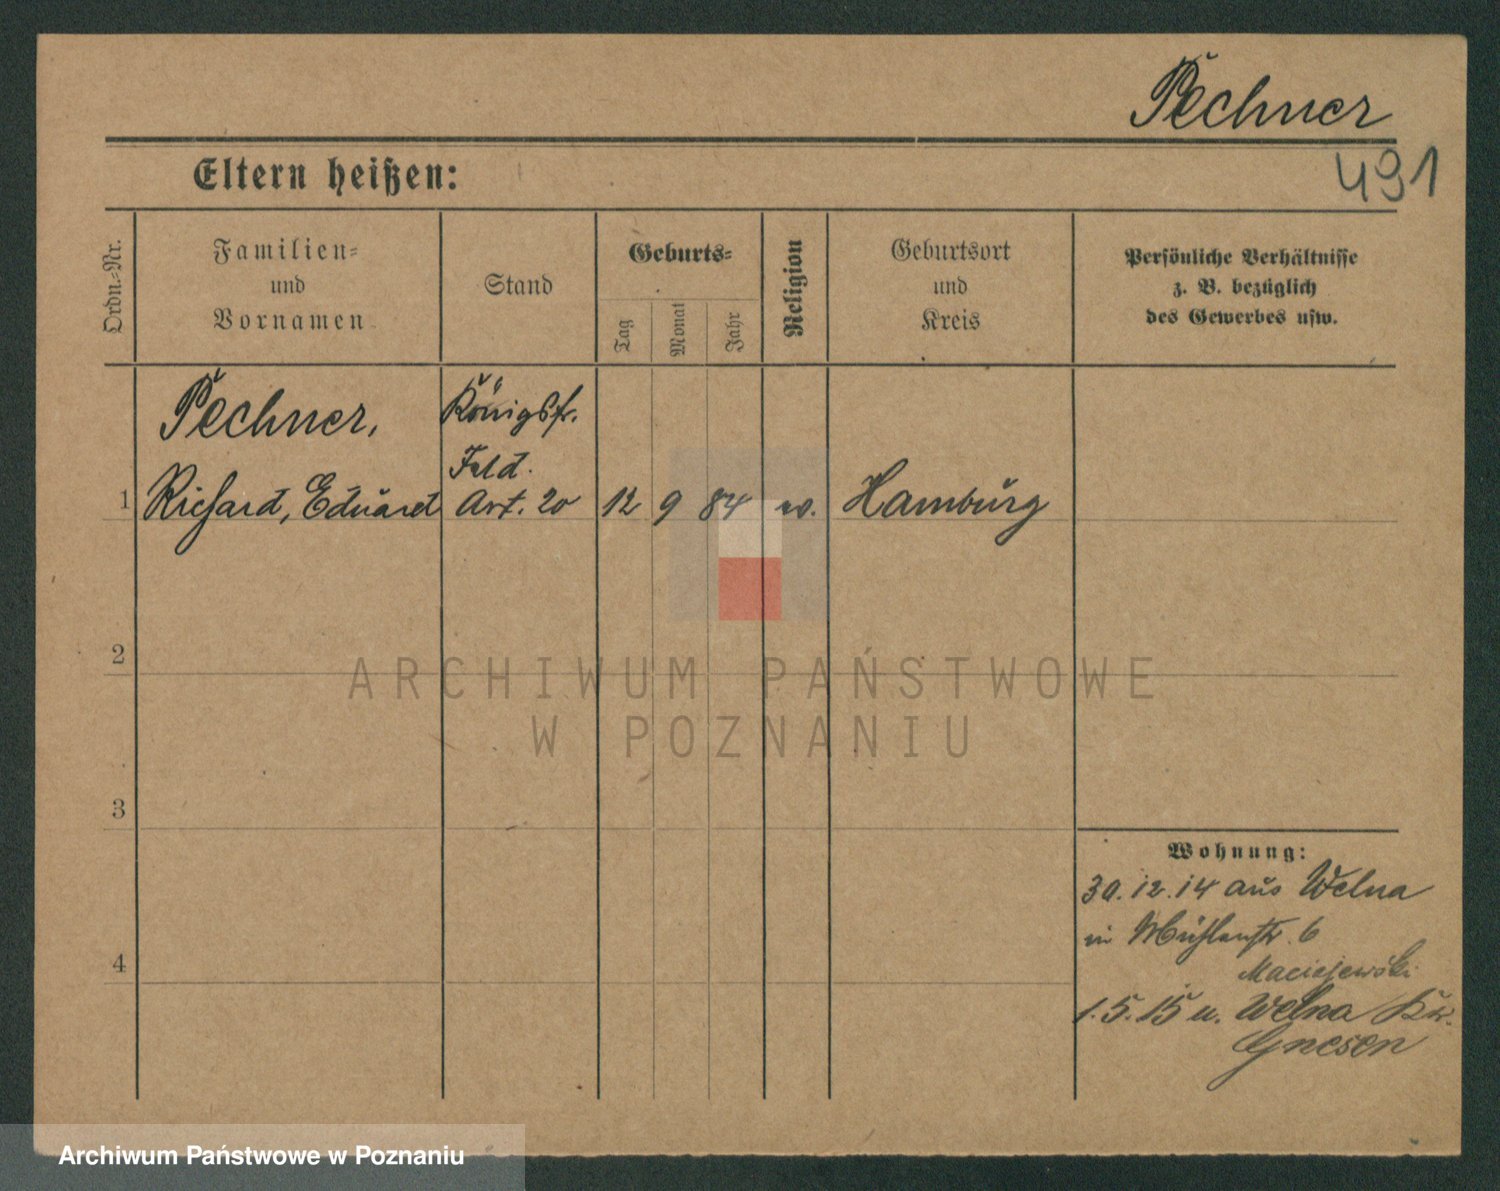 Pechner
491
Eltern heißen:
Ordn.-Nr.
Familien-
und
Vornamen
Stand
Geburts-
Tag
Monat
Jahr
Religion
Geburtsort
und
Kreis
Persönliche Verhältnisse
z. B. bezüglich
des Gewerbes usw.
1
Pechner,
Richard, Eduard
Feld
Art. 20
12
9
84
Hamburg
2
3
4
Wohnung:
30.12.14 aus Welna
in Mühlenstr. 6
Maciejewski
1.5.15 n. Welna Kr.
Gnesen
ARCHIWUM PAŃSTWOWE
W POZNANIU
Archiwum Państwowe w Poznaniu